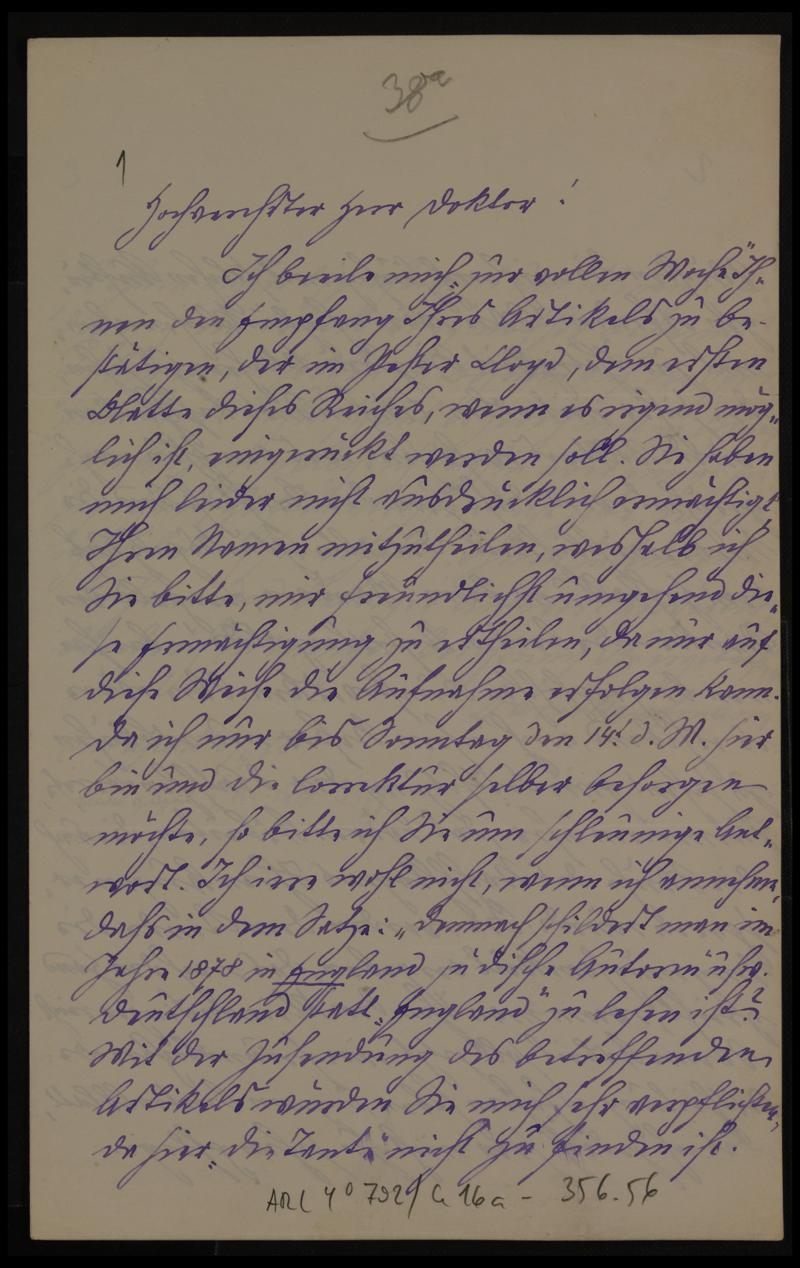 38a
1
Hochverehrter Herr Doktor!
Ich beeile mich „zur vollen Woche“ Ih-
nen den Empfang Ihres Artikels zu be-
stätigen, der im Pester Lloyd, dem ersten
Blatte dieses Reiches, wenn es irgend mög-
lich ist, eingerückt werden soll. Sie haben
mich leider nicht ausdrücklich ermächtigt,
Ihren Namen mitzutheilen, weshalb ich
Sie bitte, mir freundlichst umgehend die-
se Ermächtigung zu ertheilen, da nur auf
diese Weise die Aufnahme erfolgen kann.
Da ich nur bis Sonntag den 14. d. M. hier
bin und die Correktur selber besorgen
möchte, so bitte ich Sie um schleunige Ant-
wort. Ich irre wohl nicht, wenn ich annehme,
dass in dem Satze: „Demnach schildert man im
Jahre 1878 in England jüdische Autoren usw.
Deutschland statt „England“ zu lesen ist?
Mit der Zusendung des betreffenden
Artikels würden Sie mich sehr verpflichten,
da hier „die Tante“ nicht zu finden ist.
ARC 4° 792/ G 16a - 356.56